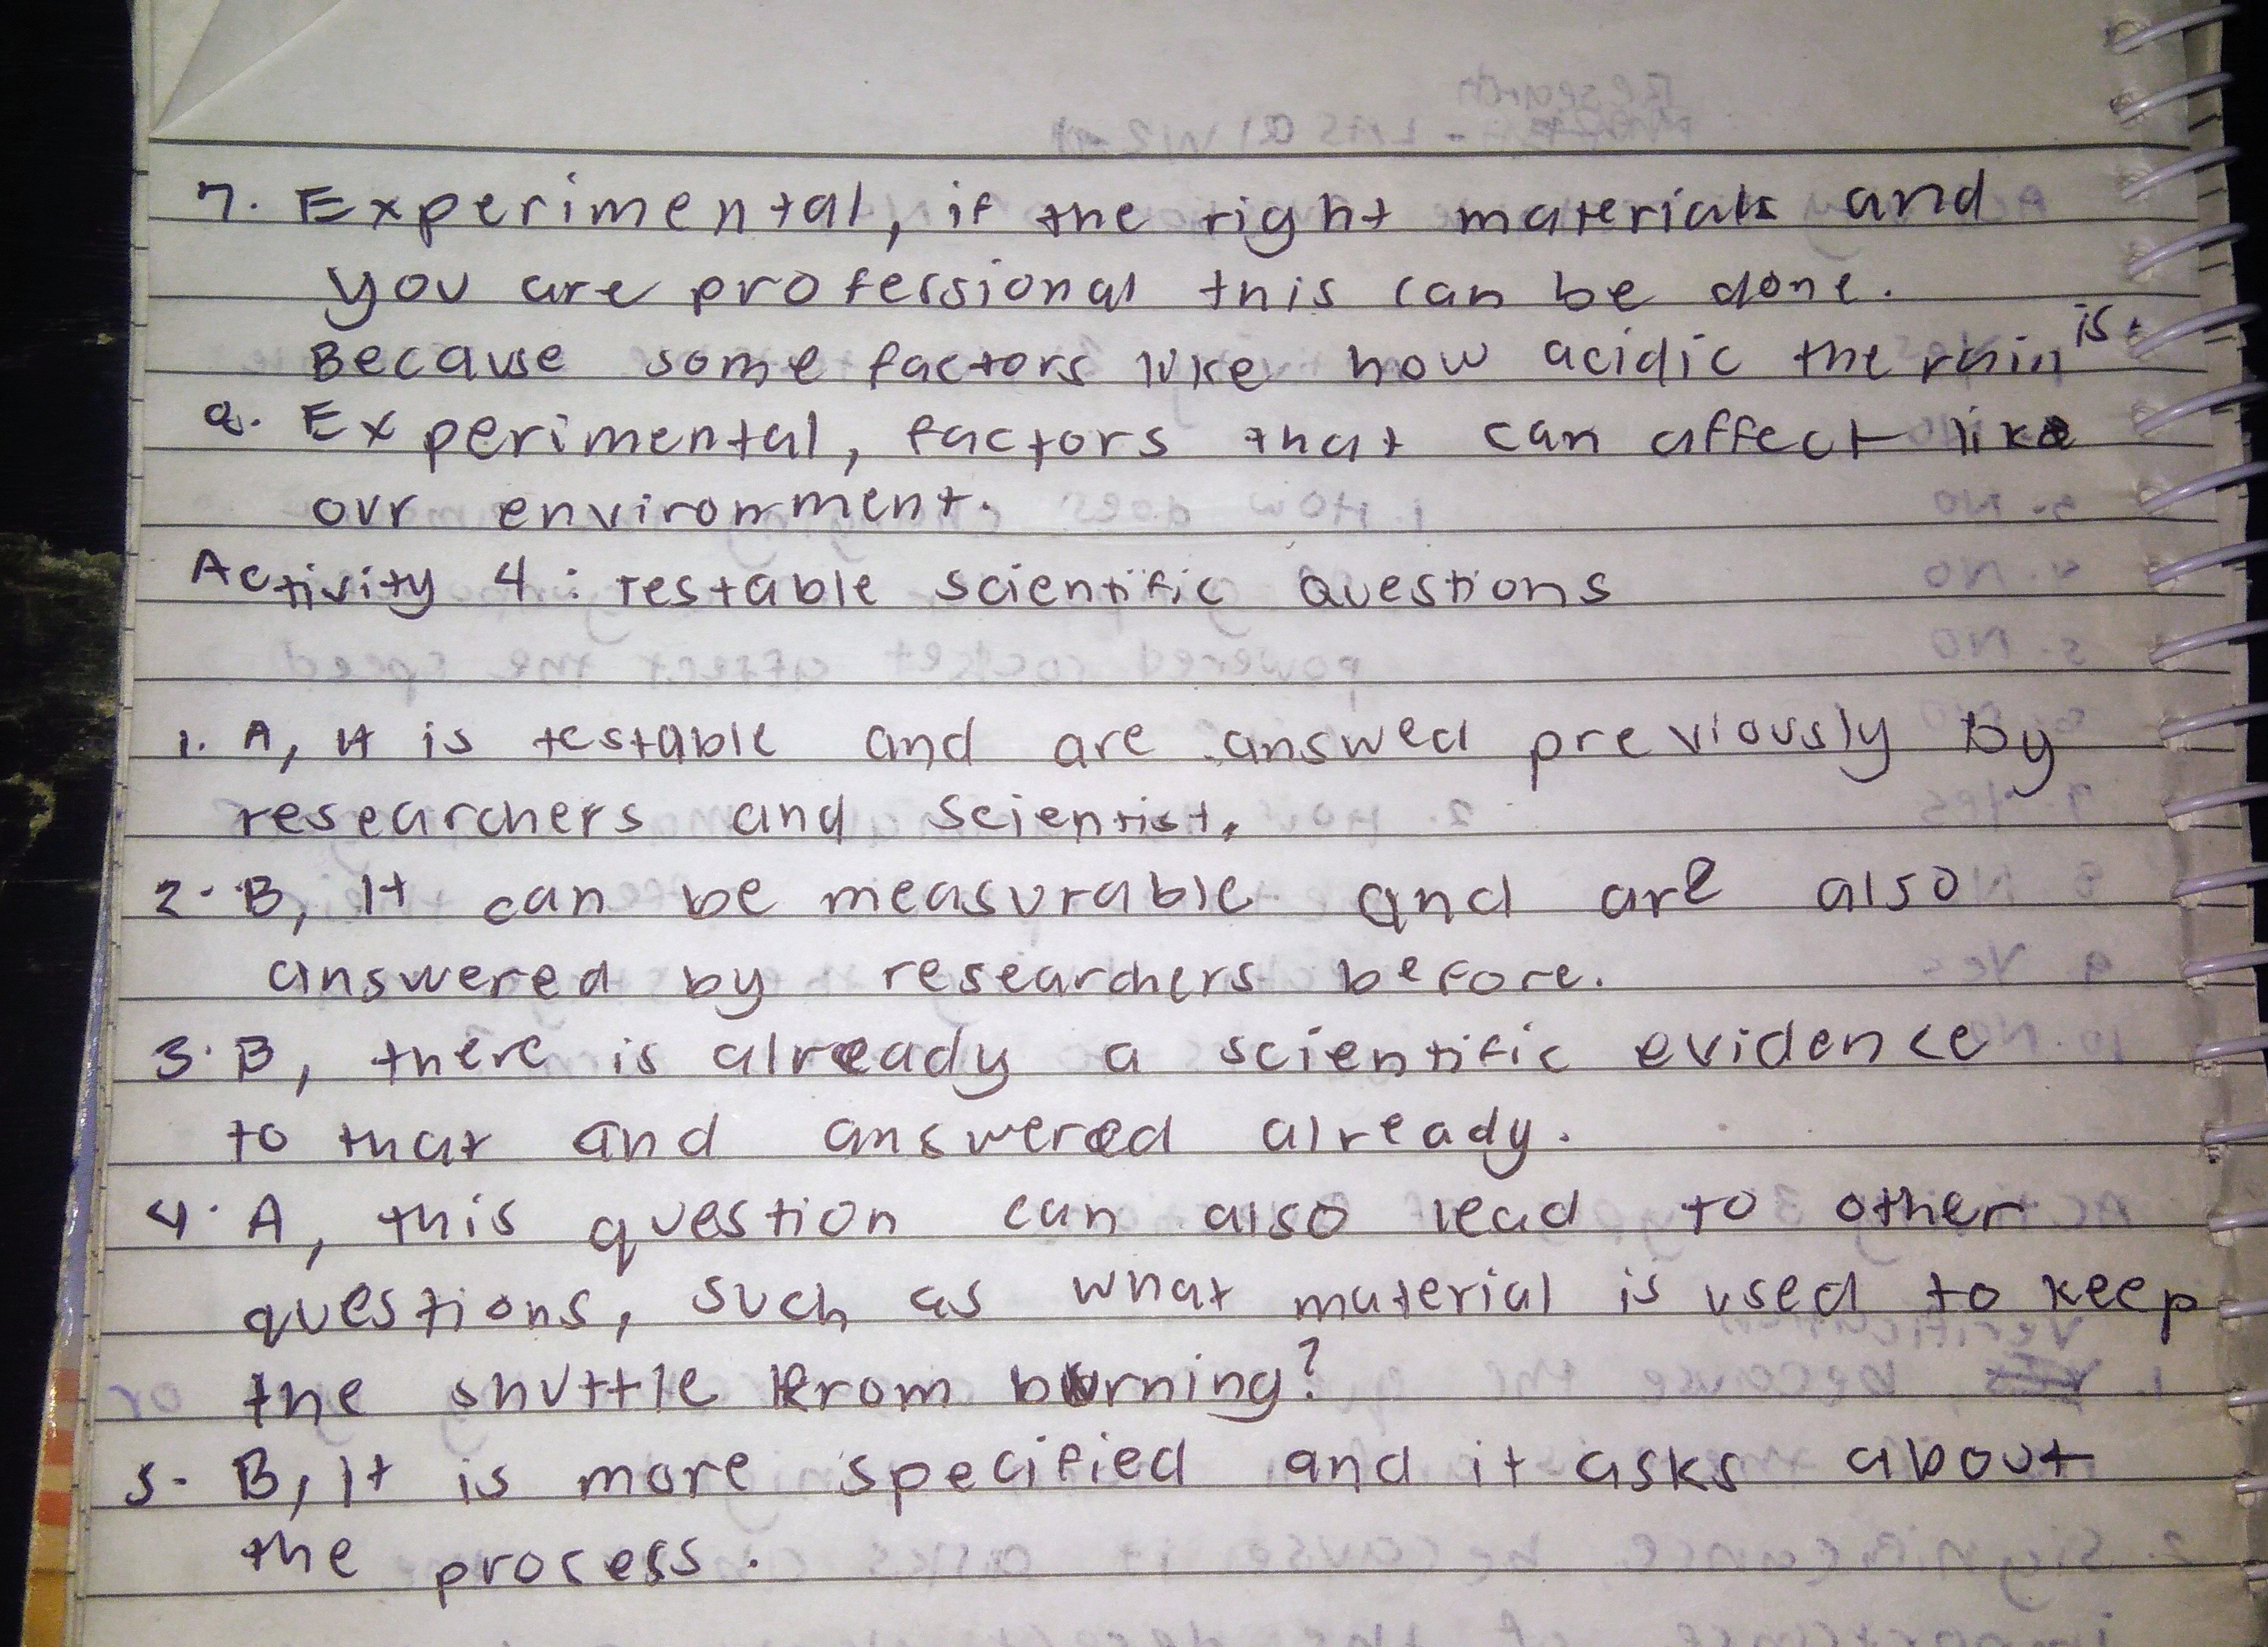 7. Experimental, if the right materials and
you are professional this can be done.
Because some factors like how acidic the rain is.
8. Experimental, factors that can affect like
our environment.
Activity 4: Testable scientific Questions
1. A, It is testable and are answed previously by
researchers and scientist.
2. B, It can be measurable and are also
answered by researchers before.
3. B, there is already a scientific evidence
to that and answered already.
4. A, this question can also lead to other
questions, such as what material is used to keep
the shuttle from burning?
5. B, It is more specified and it asks about
the process.